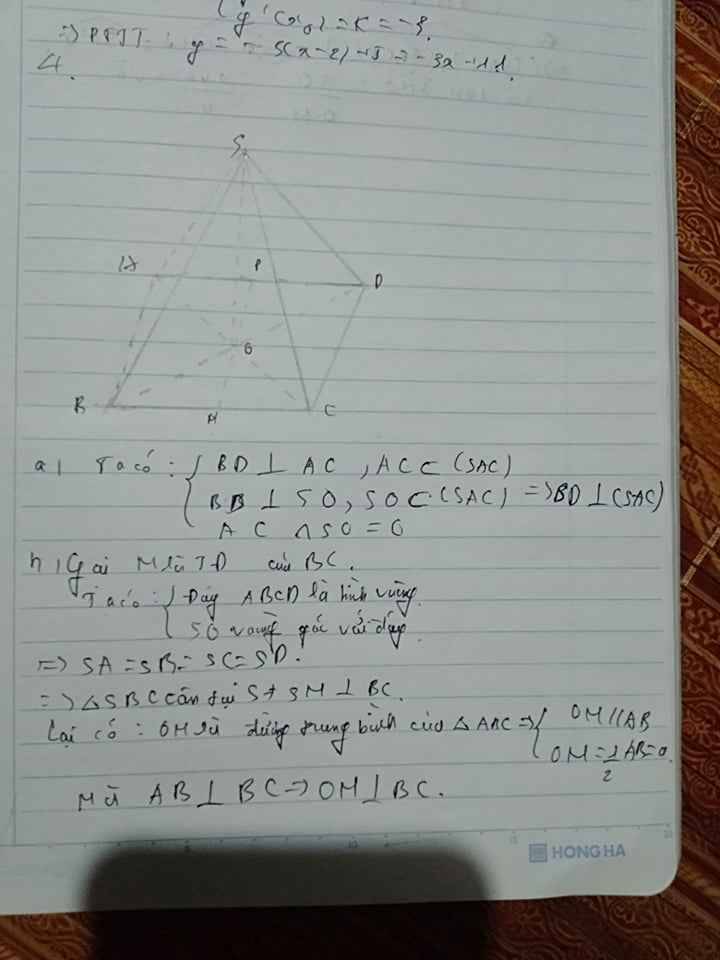 (y'(x₀) = k = -3.
=> PTTT: y = -3(x-2)+5 = -3x+11.
4.
S
A P D
O
B M C
a) Ta có: { BD ⊥ AC, AC ⊂ (SAC)
BD ⊥ SO, SO ⊂ (SAC) => BD ⊥ (SAC)
AC ∩ SO = O
b) Gọi M là TĐ của BC.
Ta có: { Đáy ABCD là hình vuông
SO vuông góc với đáy
=> SA = SB = SC = SD.
=> △SBC cân tại S => SM ⊥ BC.
Lại có: OM là đường trung bình của △ABC => { OM // AB
OM = 1/2 AB = a.
Mà AB ⊥ BC => OM ⊥ BC.
HONG HA